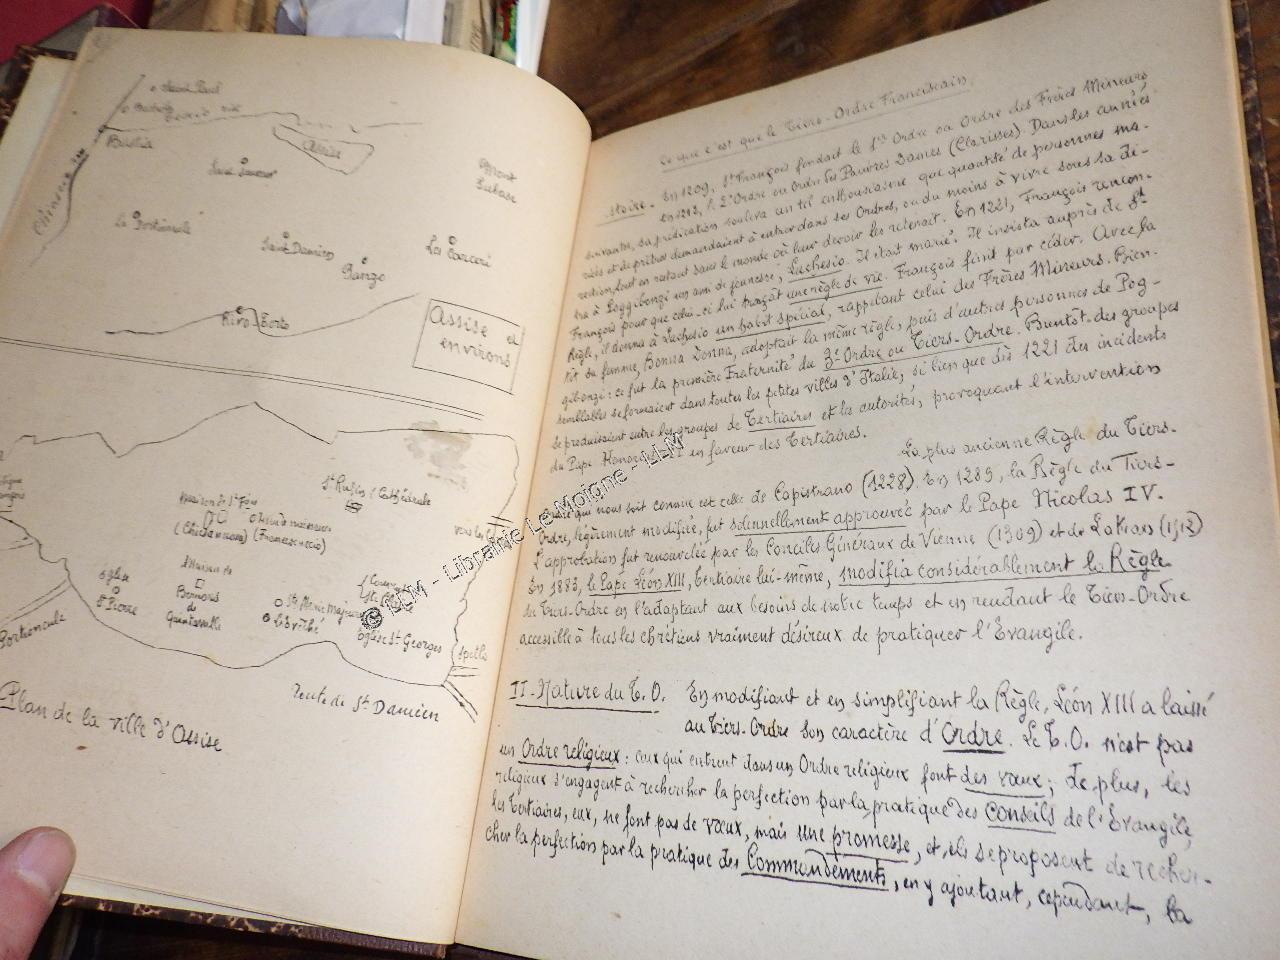 Saint Paul
Bastia
Assise
Mont
Subase
Saint Sauveur
La Portioncule
Saint Damien
Les Carceri
Panzo
Rivo Torto
Assise et
environs
St Rufin (Cathédrale
Maison de St Frois
(Chiesa nuova) (Francescuccio)
Maison de
Bernard
de
Quintavalle
Église
St Pierre
Ste Marie Majeure
L'Évêché
Église St Georges
Spello
Portioncule
route de St Damien
Plan de la ville d'Assise
Ce que c'est que le Tiers-Ordre Franciscain.
En 1209, St François fondait le 1er Ordre ou Ordre des Frères Mineurs
en 1212, le 2e Ordre ou Ordre des Pauvres Dames (Clarisses). Dans les années
suivantes, sa prédication souleva un tel enthousiasme que quantité de personnes ma-
riées et de prêtres demandaient à entrer dans ses Ordres, ou du moins à vivre sous sa di-
rection, tout en restant dans le monde où leur devoir les retenait. En 1221, François rencon-
tra à Poggibonzi un ami de jeunesse, Luchesio. Il était marié. Il insista auprès de St
François pour que celui-ci lui traçât une règle de vie. François finit par céder. Avec la
Règle, il donna à Luchesio un habit spécial, rappelant celui des Frères Mineurs. Bien-
tôt sa femme, Bonna Donna, adoptait la même règle, puis d'autres personnes de Pog-
gibonzi: ce fut la première Fraternité du 3e Ordre ou Tiers-Ordre. Bientôt des groupes
semblables se formaient dans toutes les petites villes d'Italie, si bien que dès 1221 des incidents
se produisaient entre les groupes de Tertiaires et les autorités, provoquant l'intervention
du Pape Honorius III en faveur des Tertiaires.
La plus ancienne Règle du Tiers-
Ordre qui nous soit connue est celle de Capistrano (1228). En 1289, la Règle du Tiers-
Ordre, légèrement modifiée, fut solennellement approuvée par le Pape Nicolas IV.
L'approbation fut renouvelée par les Conciles Généraux de Vienne (1309) et de Latran (1512)
En 1883, le Pape Léon XIII, Tertiaire lui-même, modifia considérablement la Règle
du Tiers-Ordre en l'adaptant aux besoins de notre temps et en rendant le Tiers-Ordre
accessible à tous les chrétiens vraiment désireux de pratiquer l'Évangile.
II-Nature du T.O. En modifiant et en simplifiant la Règle, Léon XIII a laissé
au Tiers-Ordre son caractère d'Ordre. Le T.O. n'est pas
un Ordre religieux: ceux qui entrent dans un Ordre religieux font des vœux; de plus, les
religieux s'engagent à rechercher la perfection par la pratique des Conseils de l'Évangile;
les Tertiaires, eux, ne font pas de vœux, mais une promesse, et ils se proposent de recher-
cher la perfection par la pratique des Commandements, en y ajoutant, cependant, la
© LLM - Librairie Le Moigne - LLM